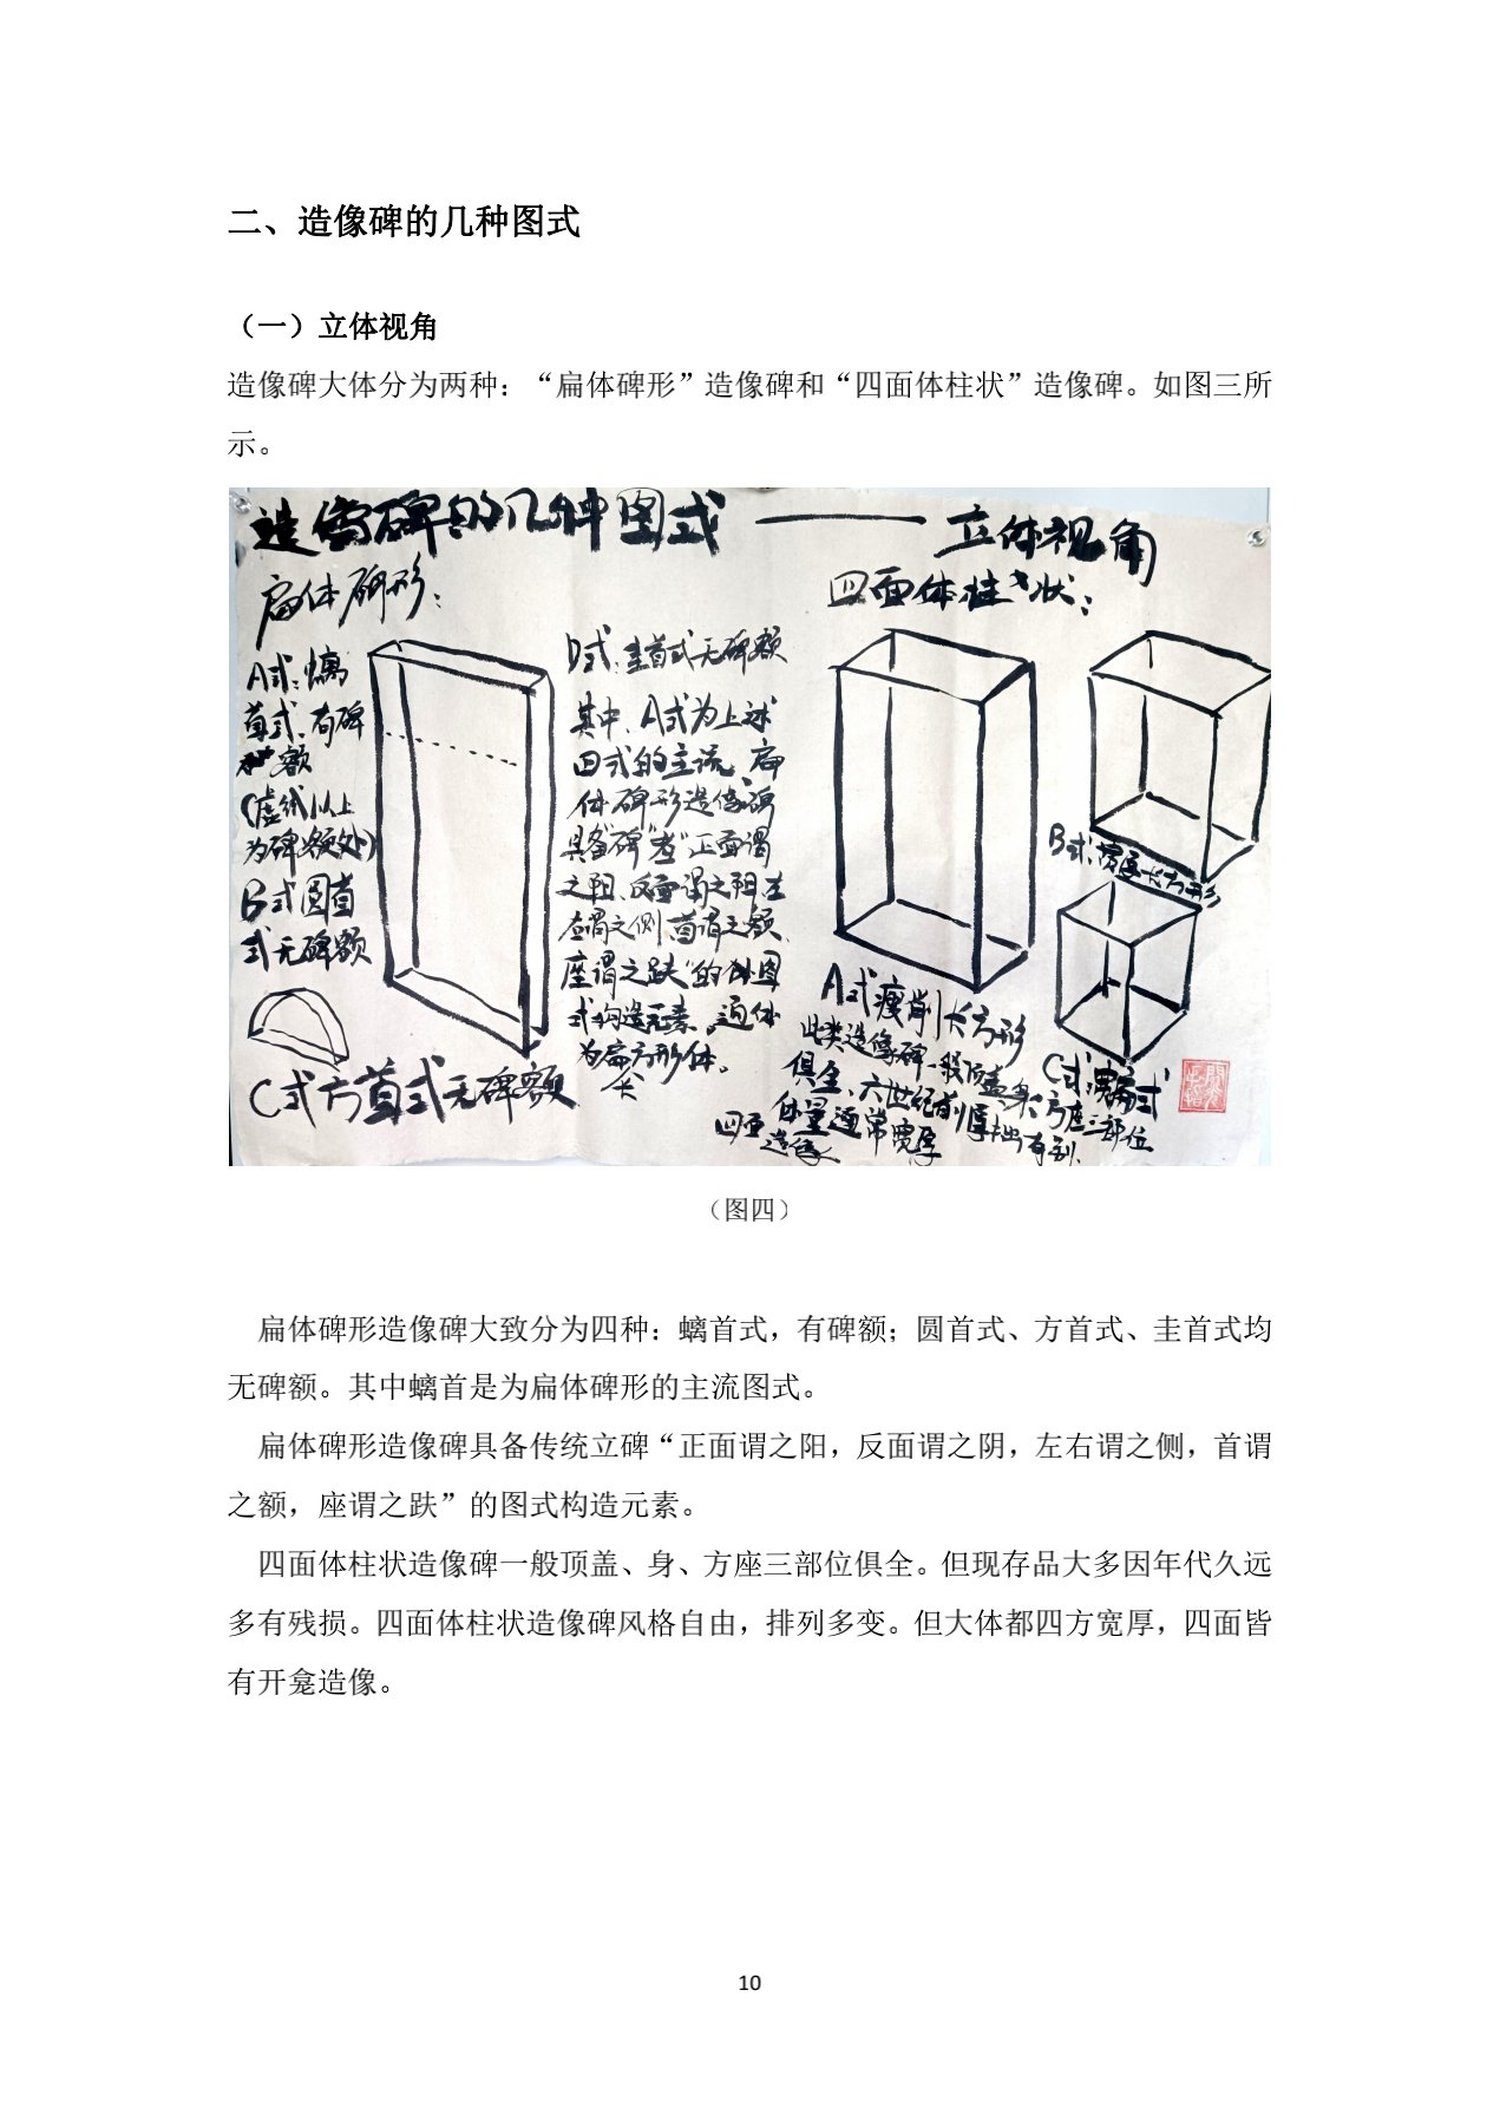 二、造像碑的几种图式
（一）立体视角
造像碑大体分为两种：“扁体碑形”造像碑和“四面体柱状”造像碑。如图三所
示。
造像碑的几种图式——立体视角
扁体碑形：
A式：螭
首式、有碑
额
（虚线以上
为碑额处）
B式圆首
式无碑额
C式方首式无碑额
D式：圭首式无碑额
其中、A式为上述
四式的主流、扁
体碑形造像碑
具备“碑”者“正面谓
之阳、反面谓之阴左
右谓之侧首谓之额、
座谓之趺”的图
式构造元素。通体
为扁方形体。
长
四面体柱状：
A式瘦削长方形
B式：宽厚长方形
C式：
此类造像碑一般顶盖、身、方座三部位
俱全、六世纪前厚拙有别、
体量通常宽厚
四面
造像
（图四）
扁体碑形造像碑大致分为四种：螭首式，有碑额；圆首式、方首式、圭首式均
无碑额。其中螭首是为扁体碑形的主流图式。
扁体碑形造像碑具备传统立碑“正面谓之阳，反面谓之阴，左右谓之侧，首谓
之额，座谓之趺”的图式构造元素。
四面体柱状造像碑一般顶盖、身、方座三部位俱全。但现存品大多因年代久远
多有残损。四面体柱状造像碑风格自由，排列多变。但大体都四方宽厚，四面皆
有开龛造像。
10